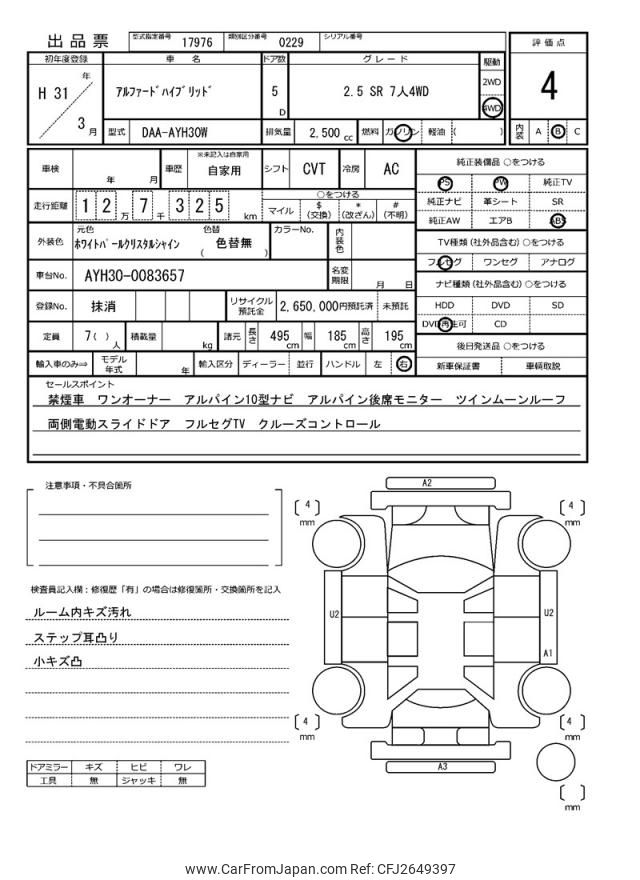 出品票 型式指定番号 17976 類別区分番号 0229 シリアル番号
初年度登録 車名 ドア数 グレード 駆動 評価点
H 31 年 3 月 アルファードハイブリッド 5 D 2.5 SR 7人4WD 2WD 4WD 4
型式 DAA-AYH30W 排気量 2,500 cc 燃料 ガソリン 軽油 ( ) 内装 A B C
車検 年 月 車歴 ※未記入は自家用 自家用 シフト CVT 冷房 AC
走行距離 1 2 万 7 千 3 2 5 km ○をつける
マイル $ (交換) * (改ざん) # (不明)
外装色 元色 ホワイトパールクリスタルシャイン 色替 ( 色替無 ) カラーNo. 内装色
車台No. AYH30-0083657 名変期限 月 日
登録No. 抹消 リサイクル預託金 2,650,000円預託済 未預託
定員 7( ) 人 積載量 kg 諸元 長さ 495 cm 幅 185 cm 高さ 195 cm
輸入車のみ⇒ モデル年式 年 輸入区分 ディーラー 並行 ハンドル 左 右
純正装備品 ○をつける
PS PW 純正TV
純正ナビ 革シート SR
純正AW エアB ABS
TV種類 (社外品含む) ○をつける
フルセグ ワンセグ アナログ
ナビ種類 (社外品含む) ○をつける
HDD DVD SD
DVD再生可 CD
後日発送品 ○をつける
新車保証書 車輌取説
セールスポイント
禁煙車 ワンオーナー アルパイン10型ナビ アルパイン後席モニター ツインムーンルーフ
両側電動スライドドア フルセグTV クルーズコントロール
注意事項・不具合箇所
検査員記入欄:修復歴「有」の場合は修復箇所・交換箇所を記入
ルーム内キズ汚れ
ステップ耳凸り
小キズ凸
ドアミラー キズ ヒビ ワレ
工具 無 ジャッキ 無
A2
[ 4 ] mm [ 4 ] mm
U2 U2
A1
[ 4 ] mm [ 4 ] mm
A3
[ ] mm
www.CarFromJapan.com Ref: CFJ2649397